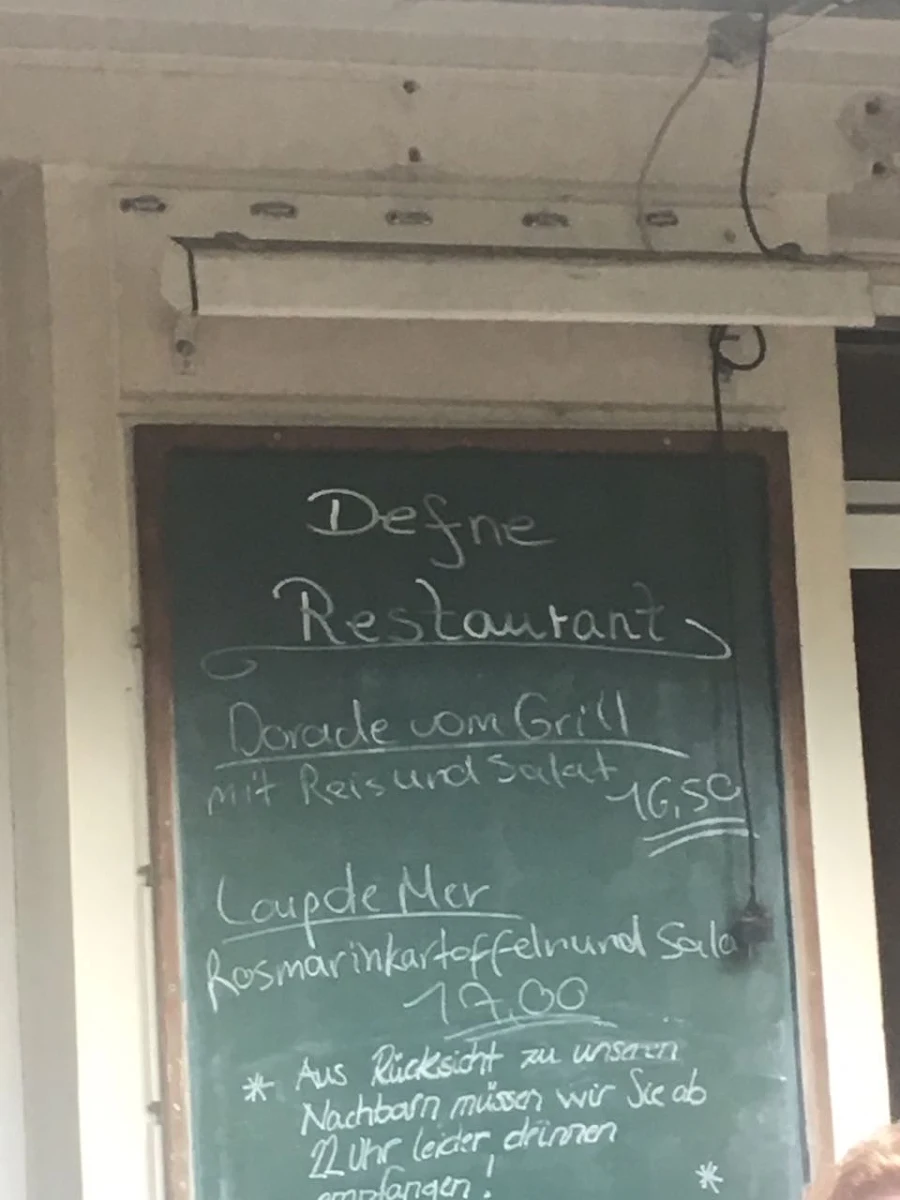 Defne
Restaurant
Dorade vom Grill
mit Reis und Salat
16,50
Loup de Mer
Rosmarinkartoffeln und Sala
17,00
* Aus Rücksicht zu unseren
Nachbarn müssen wir Sie ab
22 Uhr leider drinnen
empfangen! *